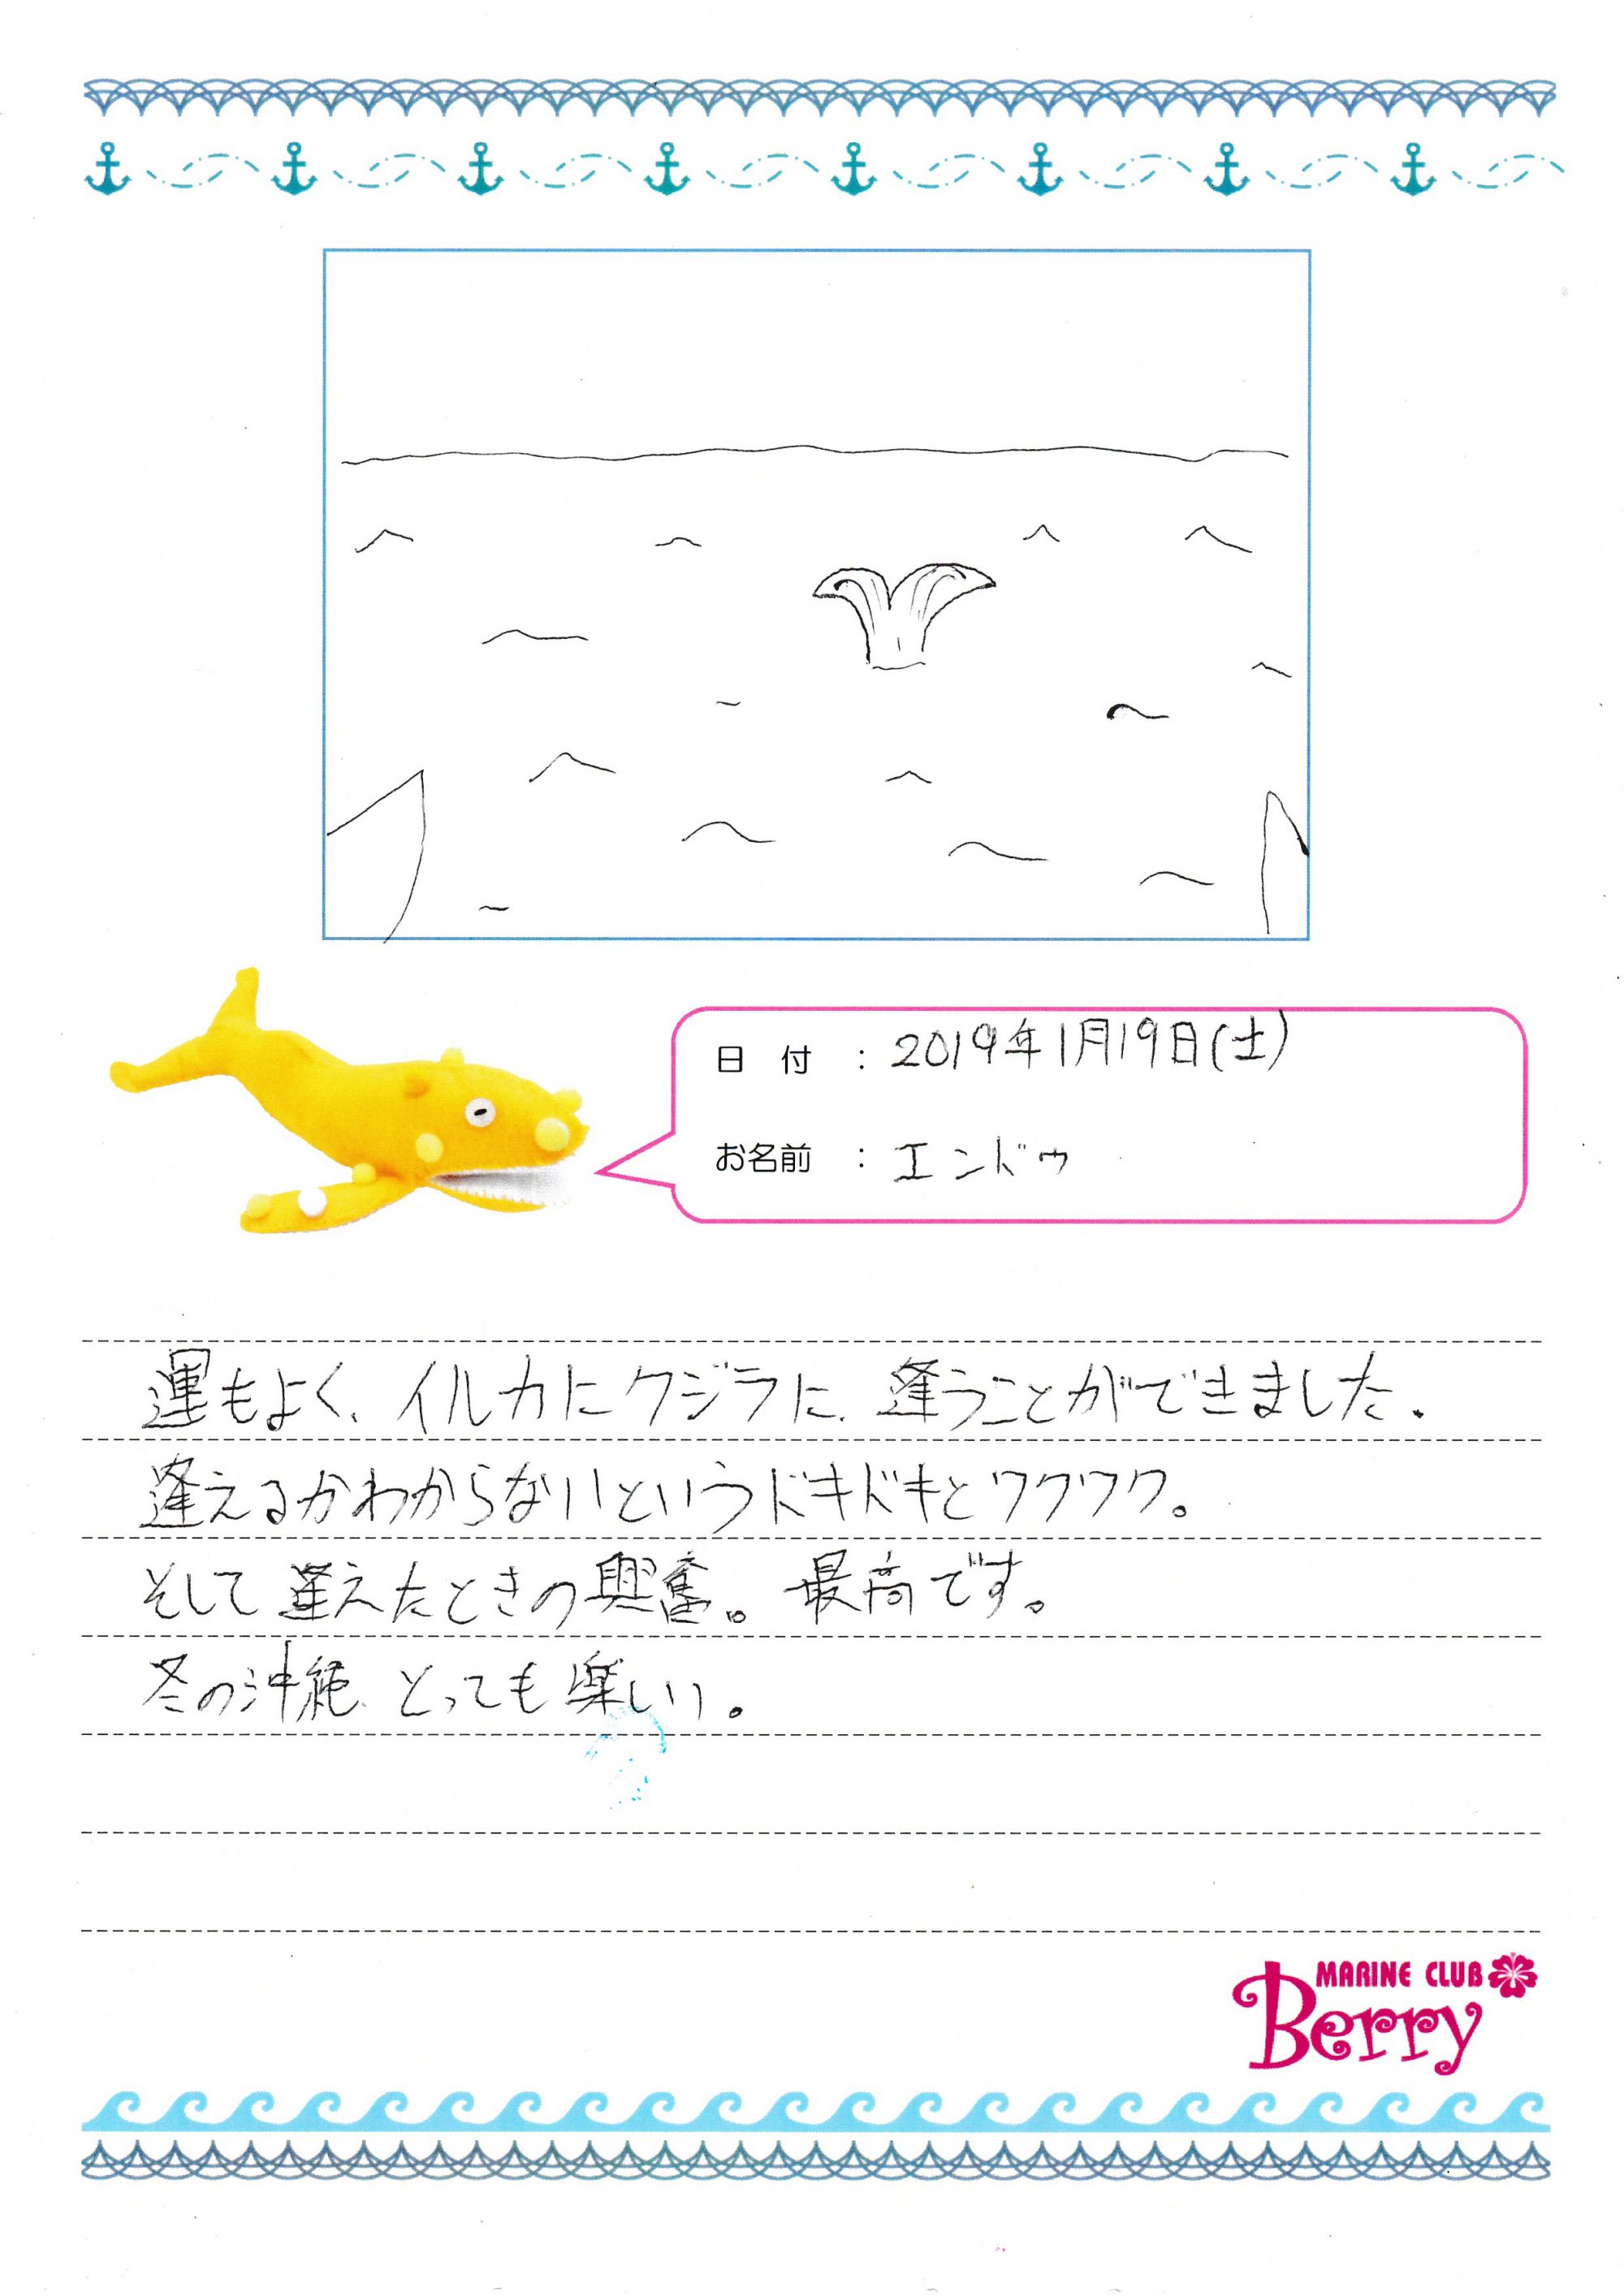 日付 : 2019年1月19日(土)
お名前 : エンドゥ
運もよく、イルカにクジラに、逢うことができました.
逢えるかわからないというドキドキとワクワク。
そして逢えたときの興奮。最高です。
冬の沖縄、とっても楽しい。
MARINE CLUB
Berry